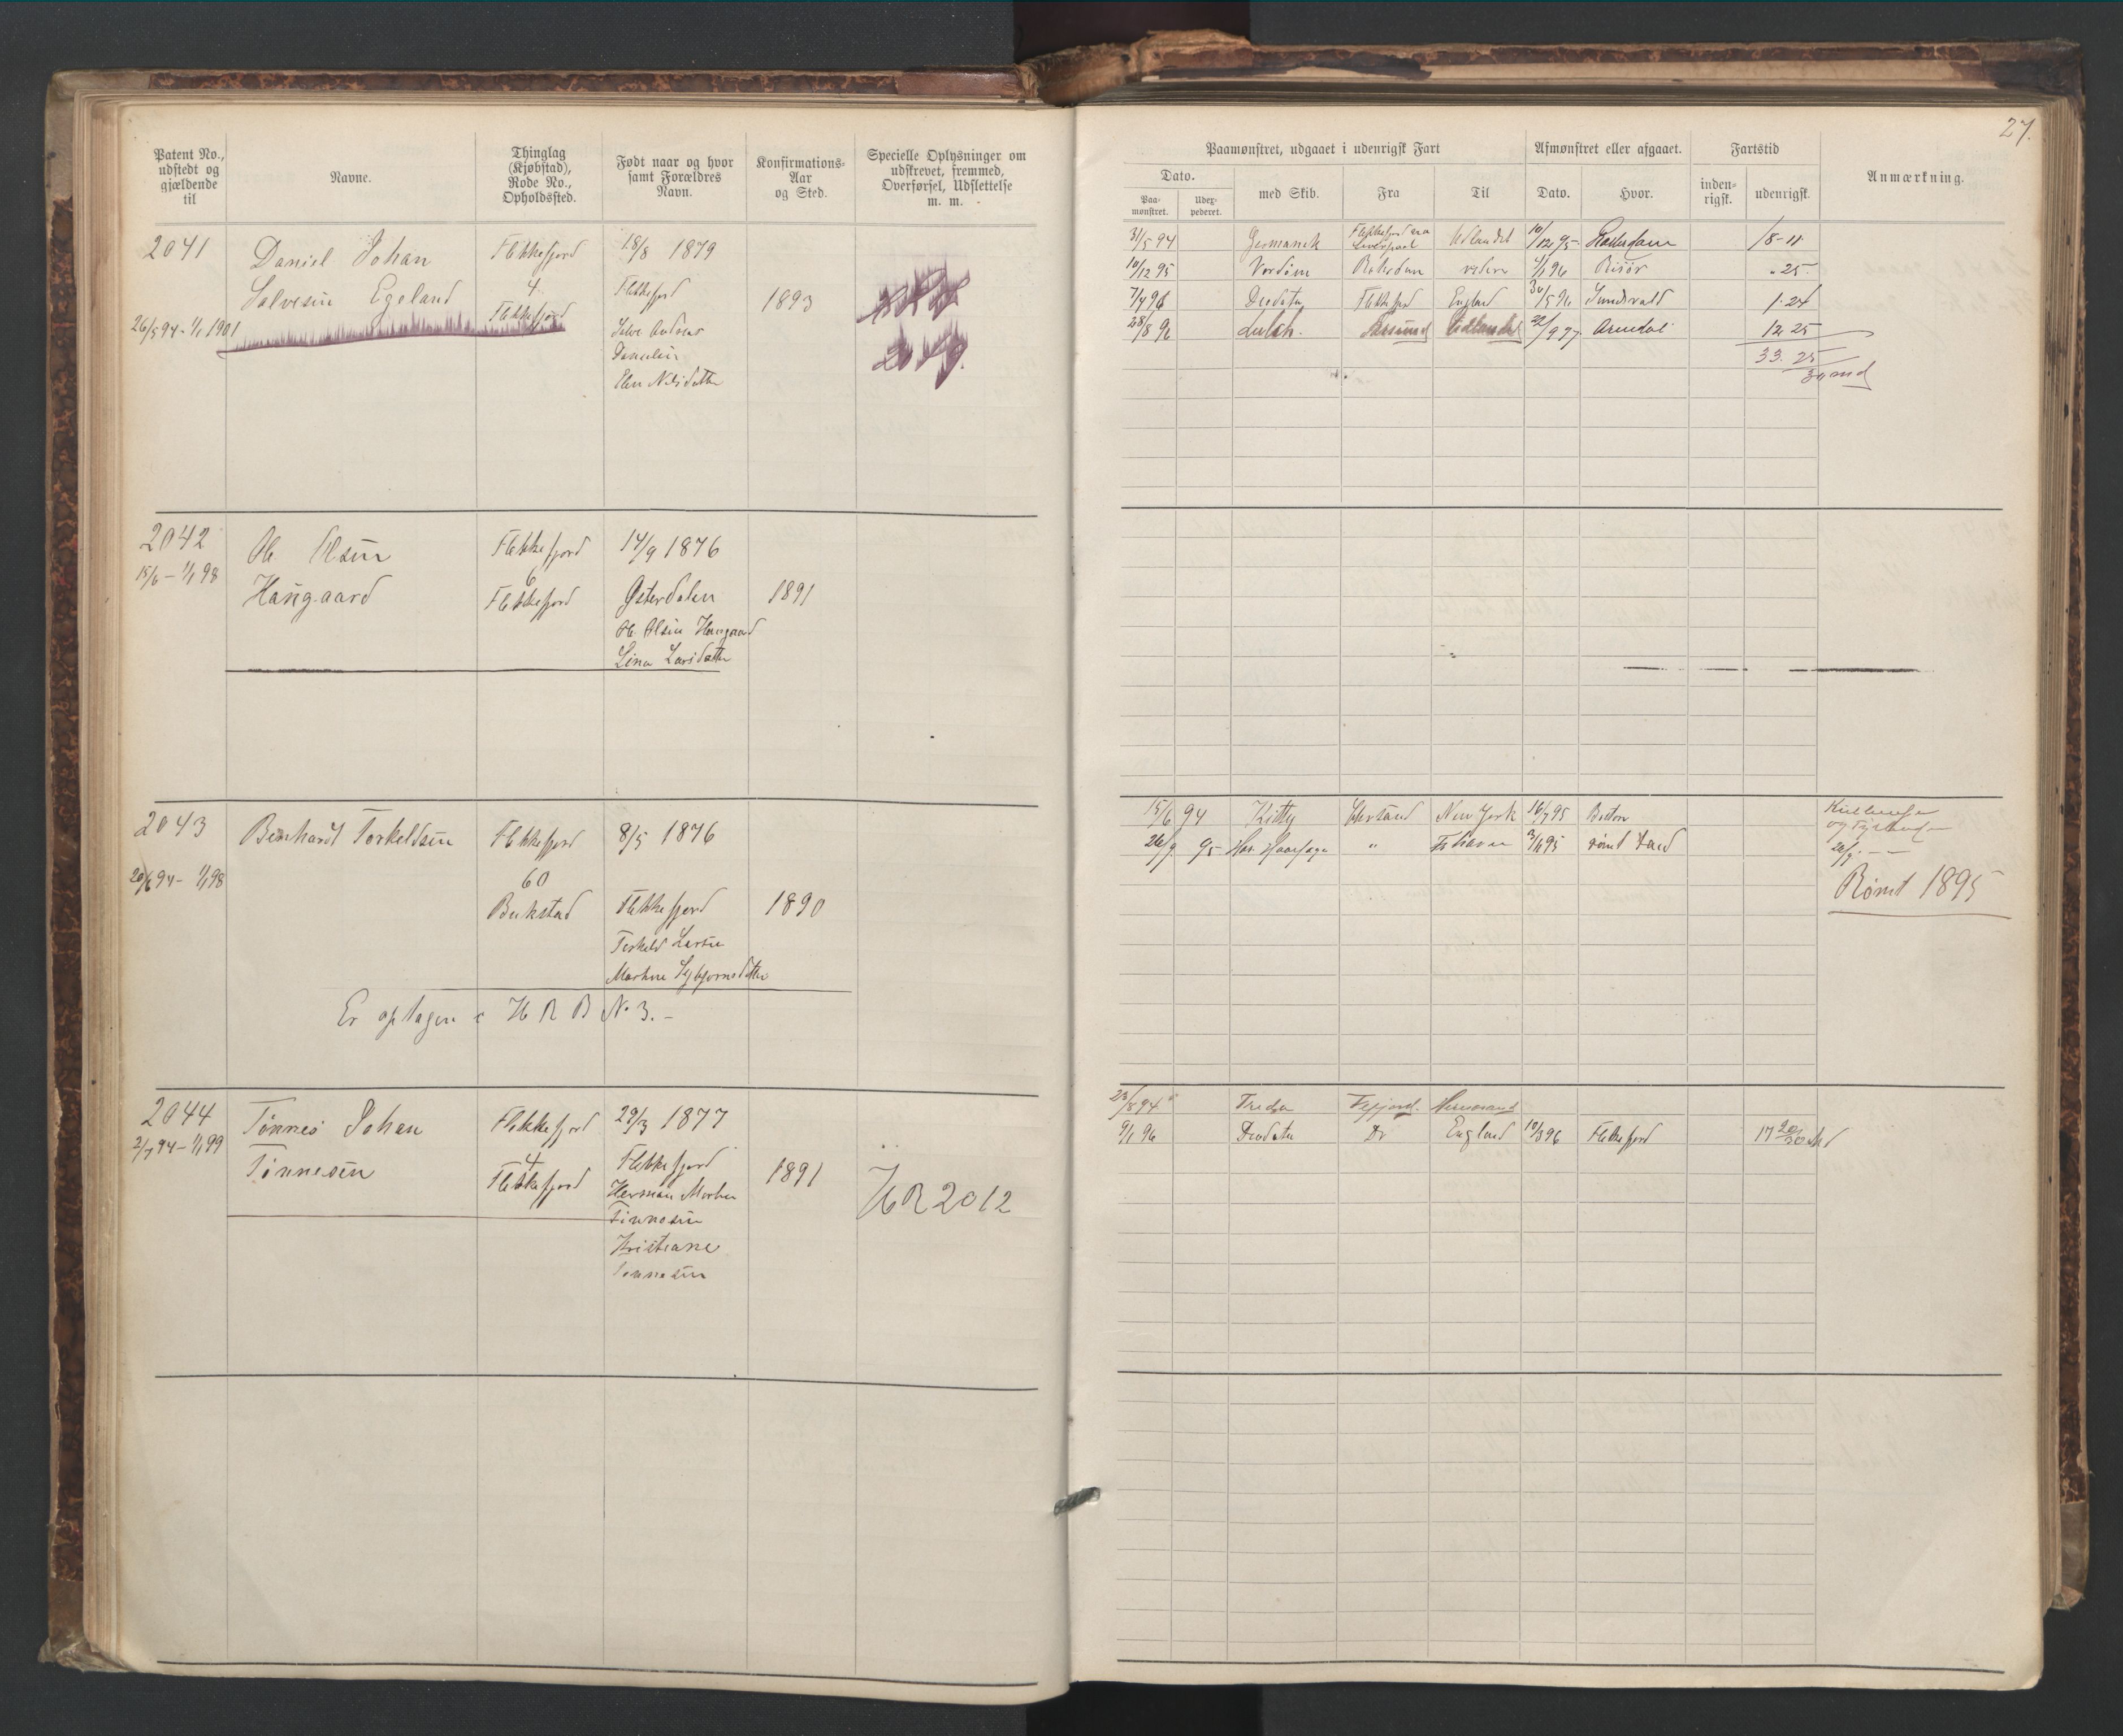 27.
Patent No., udstedt og gjældende til
Navne.
Thinglag (Kjøbstad), Rode No., Opholdssted.
Født naar og hvor samt Forældres Navn.
Konfirmations-Aar og Sted.
Specielle Oplysninger om udskrevet, fremmed, Overførsel, Udslettelse m. m.
Paamønstret, udgaaet i udenrigsk Fart
Afmønstret eller afgaaet.
Fartstid
Anmærkning.
Dato.
med Skib.
Fra
Til
Dato.
Hvor.
inden-rigsk.
udenrigsk.
Paa-mønstret.
Udex-pederet.
2041
26/5 94 - 1/1 1901
Daniel Johan
Salvesen Egeland
Flekkefjord
4
Flekkefjord
18/8 1879
Flekkefjord
Danielsen
Elen Nilsdatter
1893
31/5 94 Germanik Liverpool Udlandet 10/12 95
18-11
10/12 95 Vardøen Rotterdam 4/1 96 Risør
" 25
7/4 96 Deodata Flekkefjord England 30/5 96 Sundsvald
1-24
28/8 96 22/9 97 Arendal
12 25
33. 25
2042
15/6 - 1/1 98
Ole Olsen
Haugaard
Flekkefjord
6
Flekkefjord
14/9 1876
Østerdalen
Ole Olsen Haugaard
Lina Larsdatter
1891
2043
20/6 94 - 1/1 98
Bernhard Torkeldsen
Flekkefjord
60
Bukstad
8/5 1876
Flekkefjord
Torkeld Larsen
1890
Er optagen i H R B No 3. -
15/6 94 Kitty New York 16/7 95 Boston
26/9 95 Har. Haarfagr " 2/11 95 rømt
Rømt 1895
2044
2/7 94 - 1/1 99
Tønnes Johan
Tønnesen
Flekkefjord
4
Flekkefjord
29/3 1877
Flekkefjord
Herman
Tønnesen
Kristiane
Tønnesen
1891
HR 2012
23/8 94
9/1 96 Deodata Do England 10/3 96 Flekkefjord
17 20/30 Md